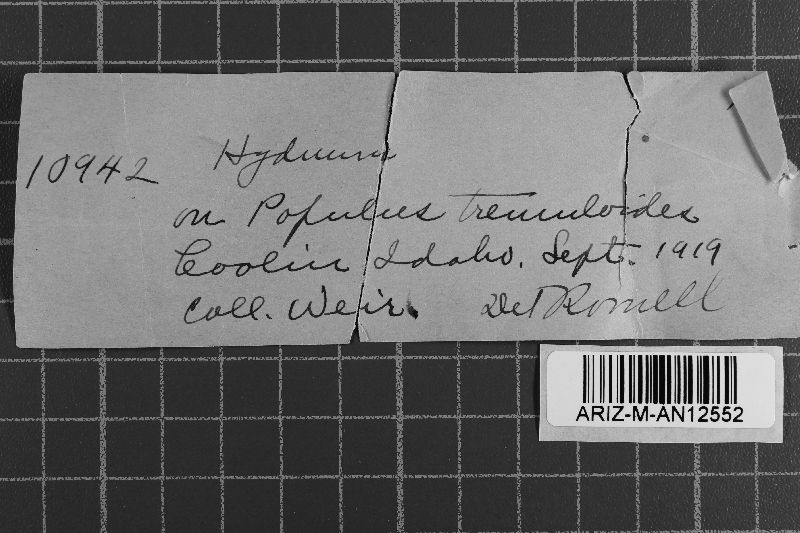 10942 Hydnum
on Populus tremuloides
Coolin Idaho. Sept. 1919
Coll. Weir. Det Romell
ARIZ-M-AN12552